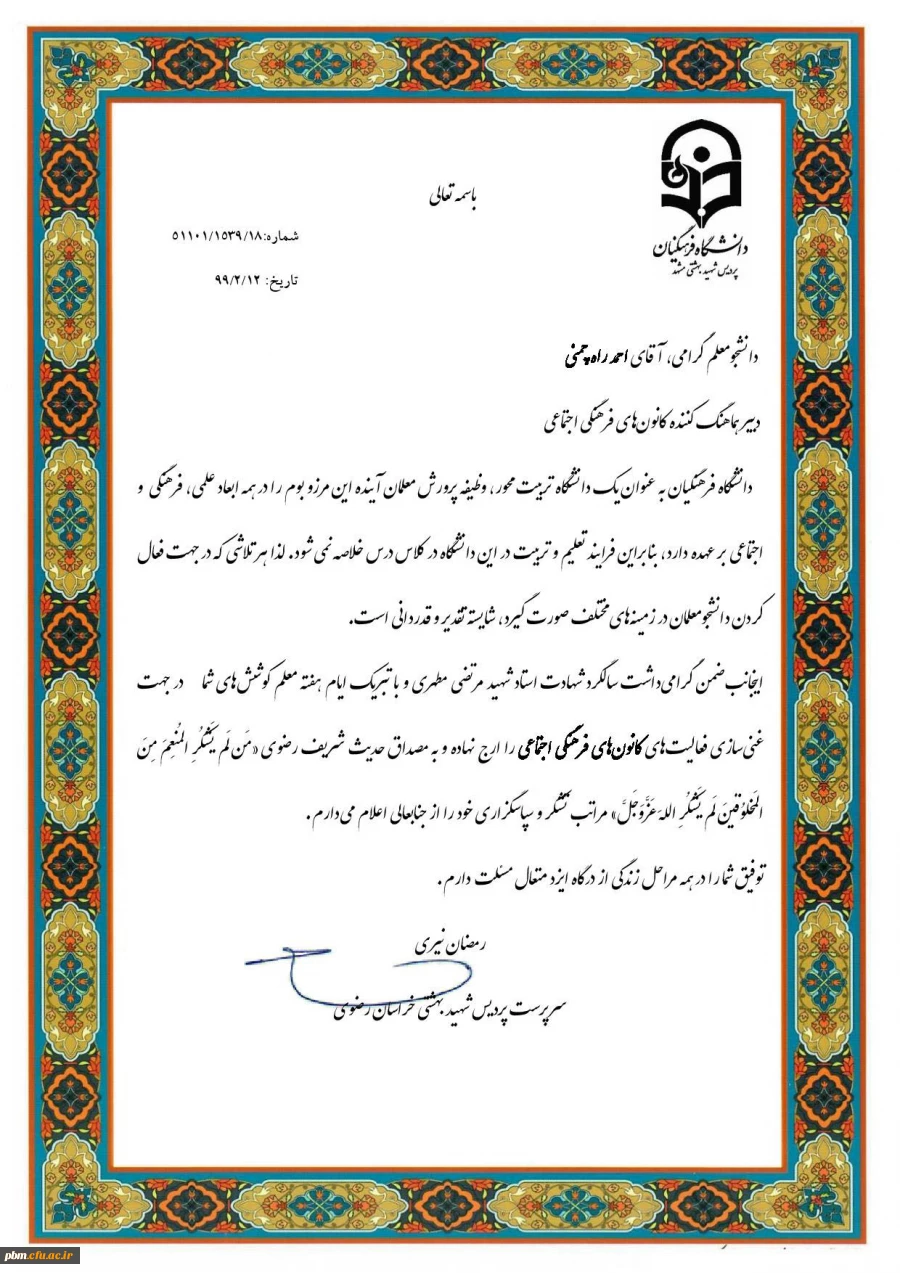 باسمه تعالی
دانشگاه فرهنگیان
پردیس شهید بهشتی مشهد
شماره:۵۱۱۰۱/۱۵۳۹/۱۸
تاریخ: ۹۹/۲/۱۲
دانشجو معلم گرامی، آقای احمد راه چمنی
دبیر هماهنگ کننده کانون‌های فرهنگی اجتماعی
دانشگاه فرهنگیان به عنوان یک دانشگاه تربیت محور، وظیفه پرورش معلمان آینده این مرز و بوم را در همه ابعاد علمی، فرهنگی و
اجتماعی بر عهده دارد، بنابراین فرایند تعلیم و تربیت در این دانشگاه در کلاس درس خلاصه نمی شود. لذا هر تلاشی که در جهت فعال
کردن دانشجو معلمان در زمینه‌های مختلف صورت گیرد، شایسته تقدیر و قدردانی است.
اینجانب ضمن گرامی‌داشت سالگرد شهادت استاد شهید مرتضی مطهری و با تبریک ایام هفته معلم کوشش‌های شما در جهت
غنی‌سازی فعالیت‌های کانون‌های فرهنگی اجتماعی را ارج نهاده و به مصداق حدیث شریف رضوی «مَن لَم یَشْکُرِ المُنعِمَ مِنَ
المَخلوُقینَ لَم یَشکُرِ اللهَ عَزَّوَجَلَّ» مراتب تشکر و سپاسگزاری خود را از جنابعالی اعلام می‌دارم.
توفیق شما را در همه مراحل زندگی از درگاه ایزد متعال مسئلت دارم.
رمضان نیری
سرپرست پردیس شهید بهشتی خراسان رضوی
pbm.cfu.ac.ir